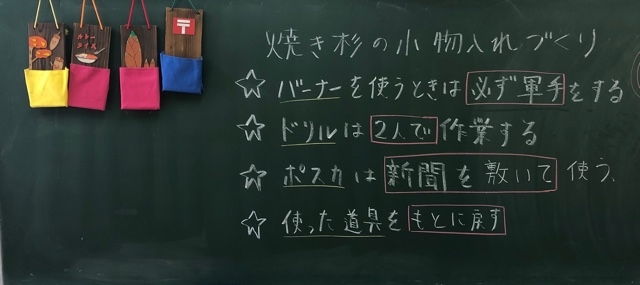 焼き杉の小物入れづくり
☆ バーナーを使うときは必ず軍手をする
☆ ドリルは2人で作業する
☆ ポスカは新聞を敷いて使う.
☆ 使った道具をもとに戻す
〒